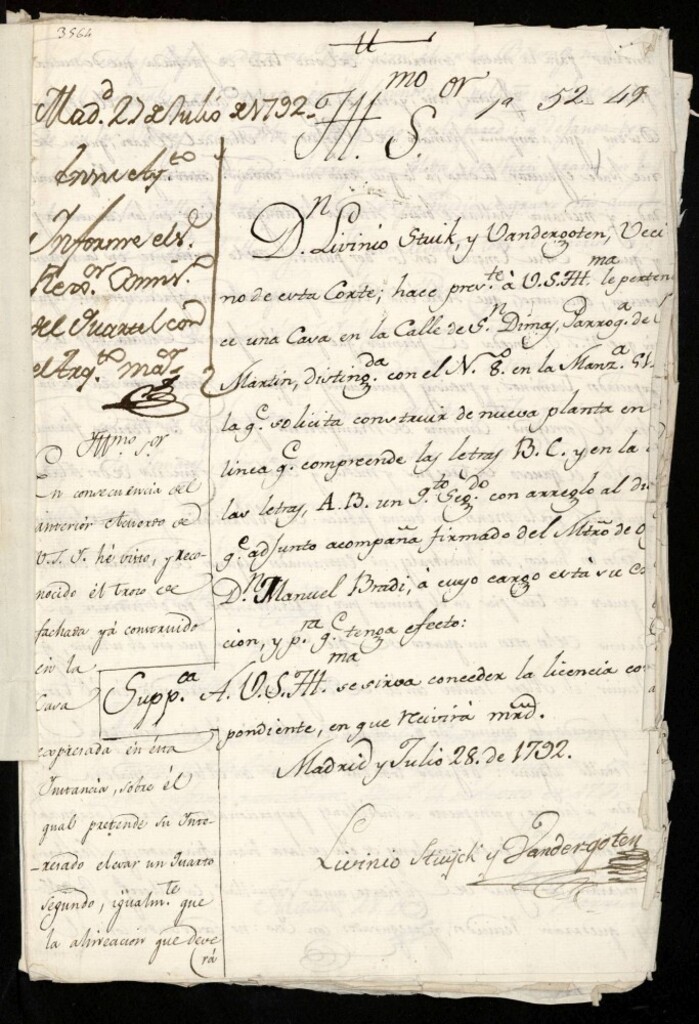 3564
Mad.d 27 de Julio de 1792.
Yll.mo S.or
1ª 52 49
En su Ay.to
Informe el S.
Rexo.or Comis.
del Quartel con
el Arq.to ma.r
D.n Livinio Stuik, y Vandergoten, Veci
no de esta Corte; hace pres.te á V.S.Yll.ma le perten
ce una Casa en la Calle de S.n Dimas, Parroq.a de
Martin, disting.da con el N.o 8. en la Manz.a 51
la q.e solicita construir de nueva planta en
linea q.e compreende las letras B. C. y en la
las letras, A.B. un q.to Seg.do con arreglo al di
q.e adjunto acompaña firmado del Mtro de O
D.n Manuel Bradi, á cuyo cargo está su co
cion, y p.ra q.e tenga efecto:
Supp.ca A. V.S.Yll.ma se sirva conceder la licencia co
pondiente, en que recivirá mrd.
Madrid y Julio 28. de 1792.
Livinio Stuijck y Vandergoten
Yllmo S.or
En consecuencia del
anterior Acuerdo de
V.S.I. hé visto, y reco-
nocido él trozo de
fachada yá construido
en la
Casa
expresada en ésta
Instancia, sobre él
qual pretende su Inte-
resado elevar un Quarto
segundo, igualm.te que
la alineacion que deve
rá